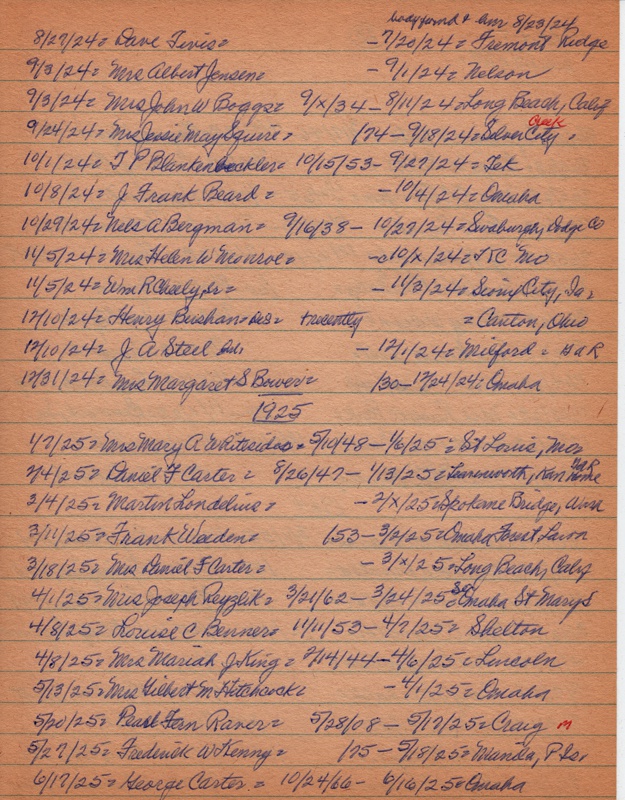 body found & bur 8/23/24
8/27/24 = Dave Tivis = - 7/20/24 = Fremont Ridge
9/3/24 = Mrs Albert Jensen = - 9/1/24 = Nelson
9/3/24 = Mrs John W Boggs = 9/x/34 - 8/11/24 = Long Beach, Calif
Creek
9/24/24 = Mrs Jessie May Squire = /74 - 9/18/24 = Silver City.
10/1/24 = T P Blankenbeckler = 10/15/53 - 9/27/24 = Tek
10/8/24 = J Frank Beard = - 10/4/24 = Omaha
10/29/24 = Nels A Bergman = 9/16/38 - 10/27/24 = Swaburgh, Dodge Co
11/5/24 = Mrs Helen W Monroe = - 10/x/24 = K C Mo
11/5/24 = Wm R Cheely, sr = - 11/3/24 = Sioux City, Ia =
12/10/24 = Henry Bushan = recently = Canton, Ohio
12/10/24 = J A Steel - 12/1/24 = Milford = G A R
12/31/24 = Mrs Margaret S Bower = /30 - 12/24/24 = Omaha
1925
1/7/25 = Mrs Mary A Whitsides = 5/10/48 - 1/6/25 = St Louis, Mo =
G A R
2/4/25 = Daniel F Carter = 8/26/47 - 1/13/25 = Leavenworth, Kan Home
3/4/25 = Martin Londelius = - 2/x/25 = Spokane Bridge, Wash
3/11/25 = Frank Weeden = /53 - 3/2/25 = Omaha Forest Lawn
3/18/25 = Mrs Daniel F Carter = - 3/x/25 = Long Beach, Calif
So
4/1/25 = Mrs Joseph Reyzlik = 3/21/62 - 3/24/25 = Omaha St Marys
4/8/25 = Louise C Benner = 11/11/53 - 4/7/25 = Shelton
4/8/25 = Mrs Mariah J King = 2/14/44 - 4/6/25 = Lincoln
5/13/25 = Mrs Gilbert M Hitchcock = - 4/1/25 = Omaha
5/20/25 = Pearl Fern Raver = 5/28/08 - 5/17/25 = Craig M
5/27/25 = Frederick W Kenny = /75 - 5/18/25 = Manila, P Is.
6/17/25 = George Carter = 10/24/66 - 6/16/25 = Omaha